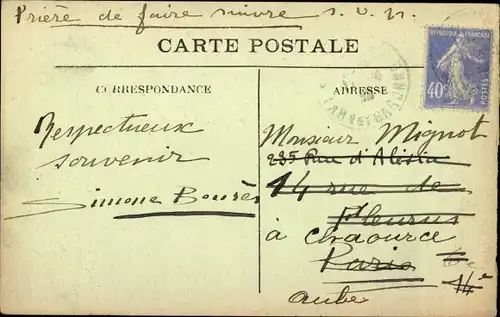 Prière de faire suivre s.v.p.
CARTE POSTALE
CORRESPONDANCE
ADRESSE
REPUBLIQUE FRANÇAISE
40c
POSTES
Respectueux
souvenir
Simone Bourès
Monsieur Mignot
235 Rue d'Alésia
14 rue de
Fleurus
à Chaource
Paris
14e
Aube